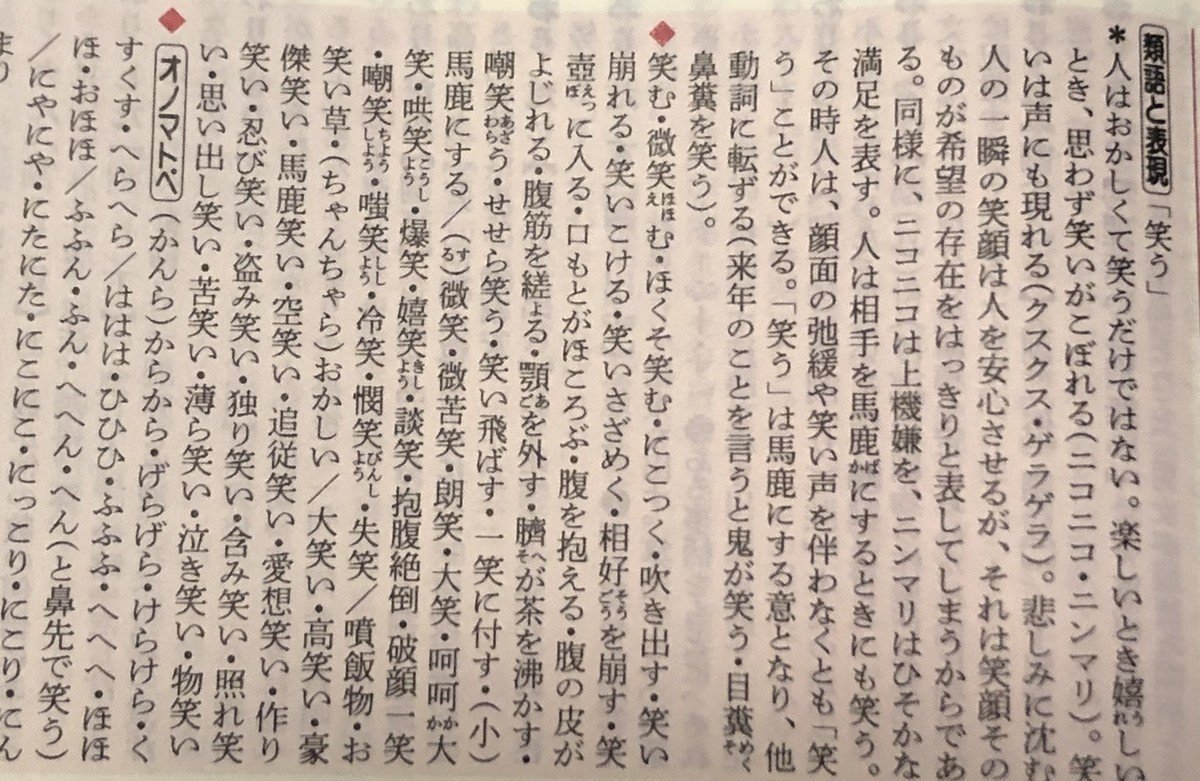 類語と表現 「笑う」
＊人はおかしくて笑うだけではない。楽しいとき嬉しい
とき、思わず笑いがこぼれる(ニコニコ・ニンマリ)。笑
いは声にも現れる(クスクス・ゲラゲラ)。悲しみに沈む
人の一瞬の笑顔は人を安心させるが、それは笑顔その
ものが希望の存在をはっきりと表してしまうからであ
る。同様に、ニコニコは上機嫌を、ニンマリはひそかな
満足を表す。人は相手を馬鹿にするときにも笑う。
その時人は、顔面の弛緩や笑い声を伴わなくとも「笑
う」ことができる。「笑う」は馬鹿にする意となり、他
動詞に転ずる(来年のことを言うと鬼が笑う・目糞
鼻糞を笑う)。
◆笑む・微笑む・ほくそ笑む・にこつく・吹き出す・笑い
崩れる・笑いこける・笑いさざめく・相好を崩す・笑
壺に入る・口もとがほころぶ・腹を抱える・腹の皮が
よじれる・腹筋を縒る・顎を外す・臍が茶を沸かす・
嘲笑う・せせら笑う・笑い飛ばす・一笑に付す・(小)
馬鹿にする／(する)微笑・微苦笑・朗笑・大笑・呵呵大
笑・哄笑・爆笑・嬉笑・談笑・抱腹絶倒・破顔一笑
・嘲笑・嗤笑・冷笑・憫笑・失笑／噴飯物・お
笑い草・(ちゃんちゃら)おかしい／大笑い・高笑い・豪
傑笑い・馬鹿笑い・空笑い・追従笑い・愛想笑い・作り
笑い・忍び笑い・盗み笑い・独り笑い・含み笑い・照れ笑
い・思い出し笑い・苦笑い・薄ら笑い・泣き笑い・物笑い
◆オノマトペ (かんら)からから・げらげら・けらけら・く
すくす・へらへら／ははは・ひひひ・ふふふ・へへへ・ほほ
ほ・おほほ／ふふん・ふん・へへん・へん(と鼻先で笑う)
／にやにや・にたにた・にこにこ・にっこり・にこり・にん